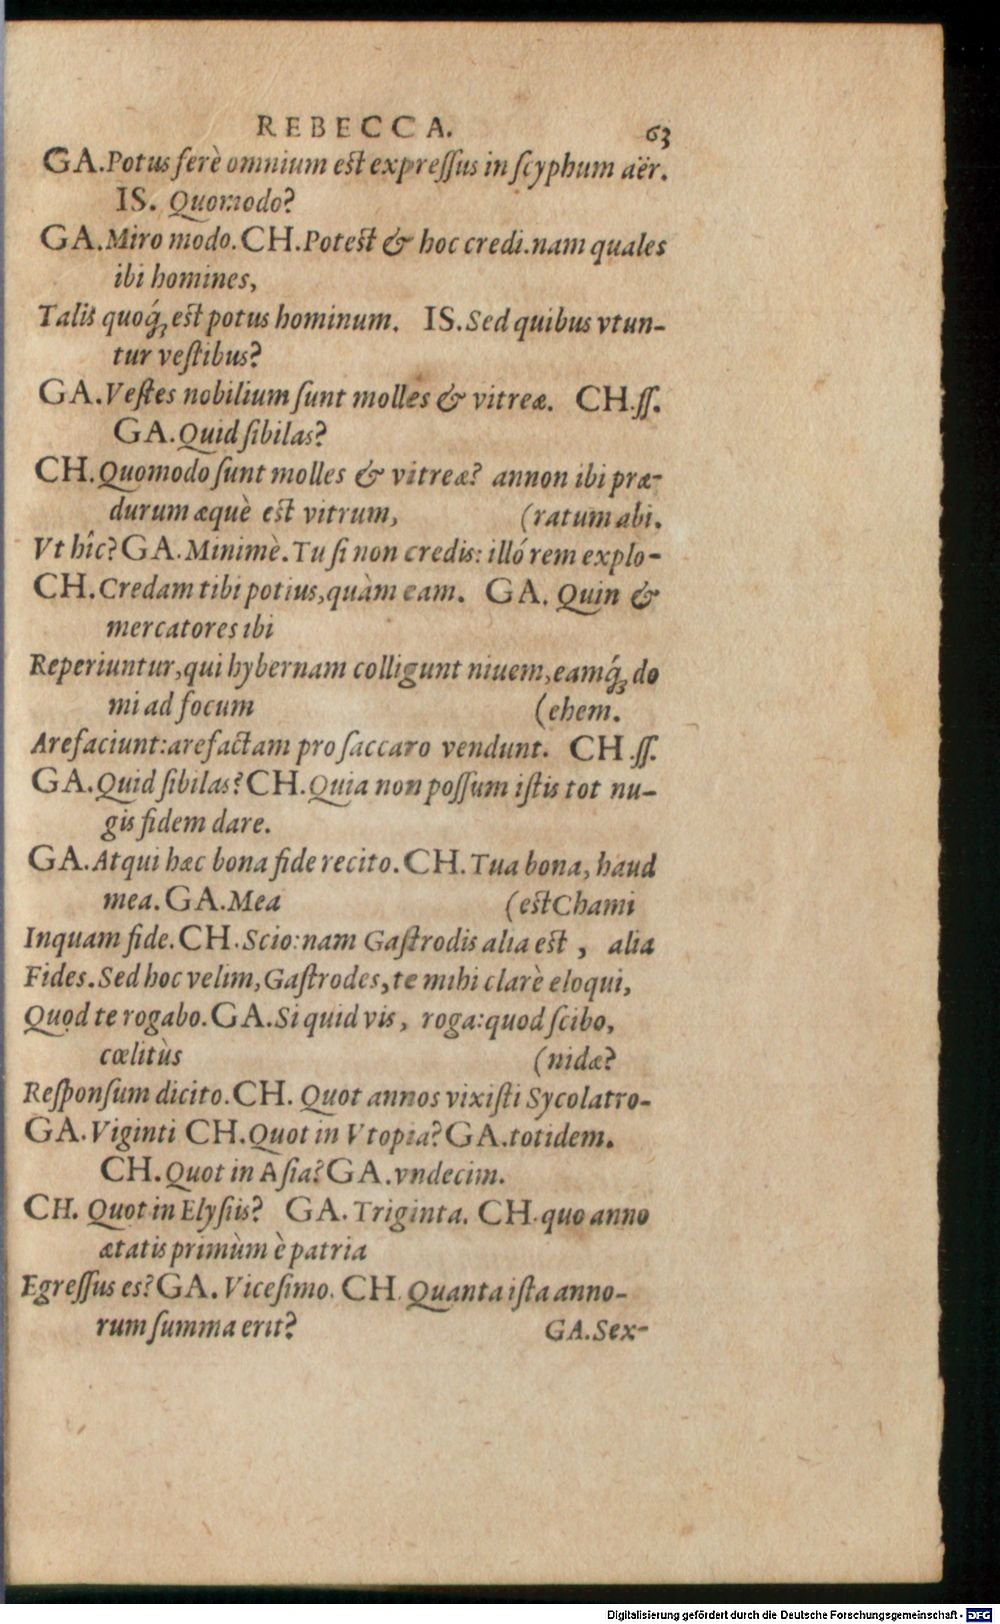 REBECCA. 63
GA.Potus ferè omnium est expreſſus in ſcyphum aër.
IS. Quomodo?
GA.Miro modo.CH.Potest & hoc credi.nam quales
ibi homines,
Talis quoq́; est potus hominum. IS.Sed quibus vtun-
tur veſtibus?
GA.Veſtes nobilium ſunt molles & vitreæ. CH.ſſ.
GA.Quid ſibilas?
CH.Quomodo ſunt molles & vitreæ? annon ibi præ-
durum æquè est vitrum, (ratum abi.
Vt hîc?GA.Minimè.Tu ſi non credis: illó rem explo-
CH.Credam tibi potius,quàm eam. GA. Quin &
mercatores ibi
Reperiuntur,qui hybernam colligunt niuem,eamq́; do
mi ad focum (ehem.
Arefaciunt:arefactam pro ſaccaro vendunt. CH.ſſ.
GA.Quid ſibilas?CH.Quia non poſſum iſtis tot nu-
gis fidem dare.
GA.Atqui hæc bona fide recito.CH.Tua bona, haud
mea.GA.Mea (est Chami
Inquam fide.CH.Scio:nam Gaſtrodis alia est , alia
Fides.Sed hoc velim,Gaſtrodes,te mihi clarè eloqui,
Quod te rogabo.GA.Si quid vis, roga:quod ſcibo,
cœlitùs (nidæ?
Reſponſum dicito.CH. Quot annos vixiſti Sycolatro-
GA.Viginti CH.Quot in Vtopia?GA.totidem.
CH.Quot in Aſia?GA.vndecim.
CH. Quot in Elyſiis? GA.Triginta. CH.quo anno
ætatis primùm è patria
Egreſſus es?GA. Viceſimo. CH.Quanta iſta anno-
rum ſumma erit? GA.Sex-
Digitalisierung gefördert durch die Deutsche Forschungsgemeinschaft - DFG